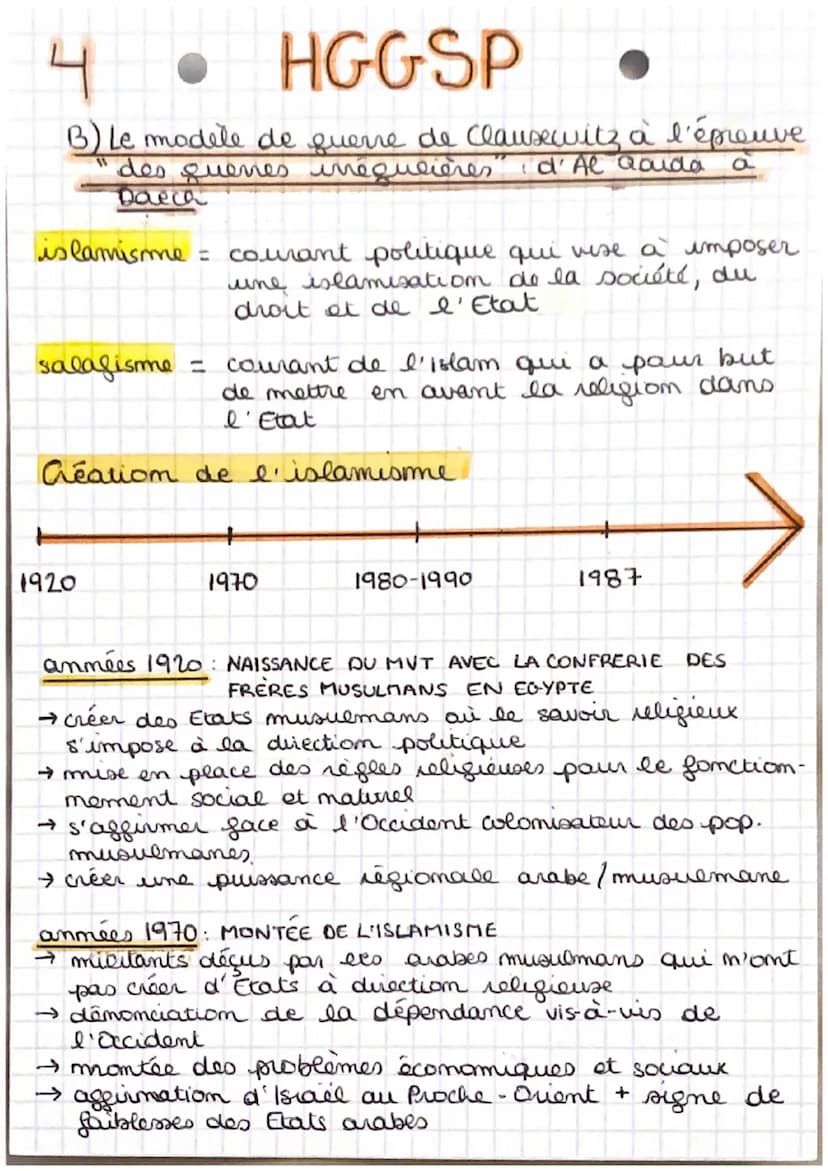 4 HGGSP
B) Le modèle de guerre de Clausewitz à l'épreuve
"des guerres irrégulières" : d'Al Qaïda à
Daech
islamisme = courant politique qui vise à imposer
une islamisation de la société, du
droit et de l'Etat
salafisme = courant de l'islam qui a pour but
de mettre en avant la religion dans
l'Etat
Création de l'islamisme
1920 1970 1980-1990 1987
années 1920 : NAISSANCE DU MVT AVEC LA CONFRERIE DES
FRÈRES MUSULMANS EN EGYPTE
→ créer des Etats musulmans où le savoir religieux
s'impose à la direction politique
→ mise en place des règles religieuses pour le fonction-
nement social et naturel
→ s'affirmer face à l'Occident colonisateur des pop.
musulmanes
→ créer une puissance régionale arabe/musulmane
années 1970 : MONTÉE DE L'ISLAMISME
→ militants déçus par les arabes musulmans qui n'ont
pas créer d'Etats à direction religieuse
→ dénonciation de la dépendance vis-à-vis de
l'Occident
→ montée des problèmes économiques et sociaux
→ affirmation d'Israël au Proche-Orient + signe de
faiblesses des Etats arabes